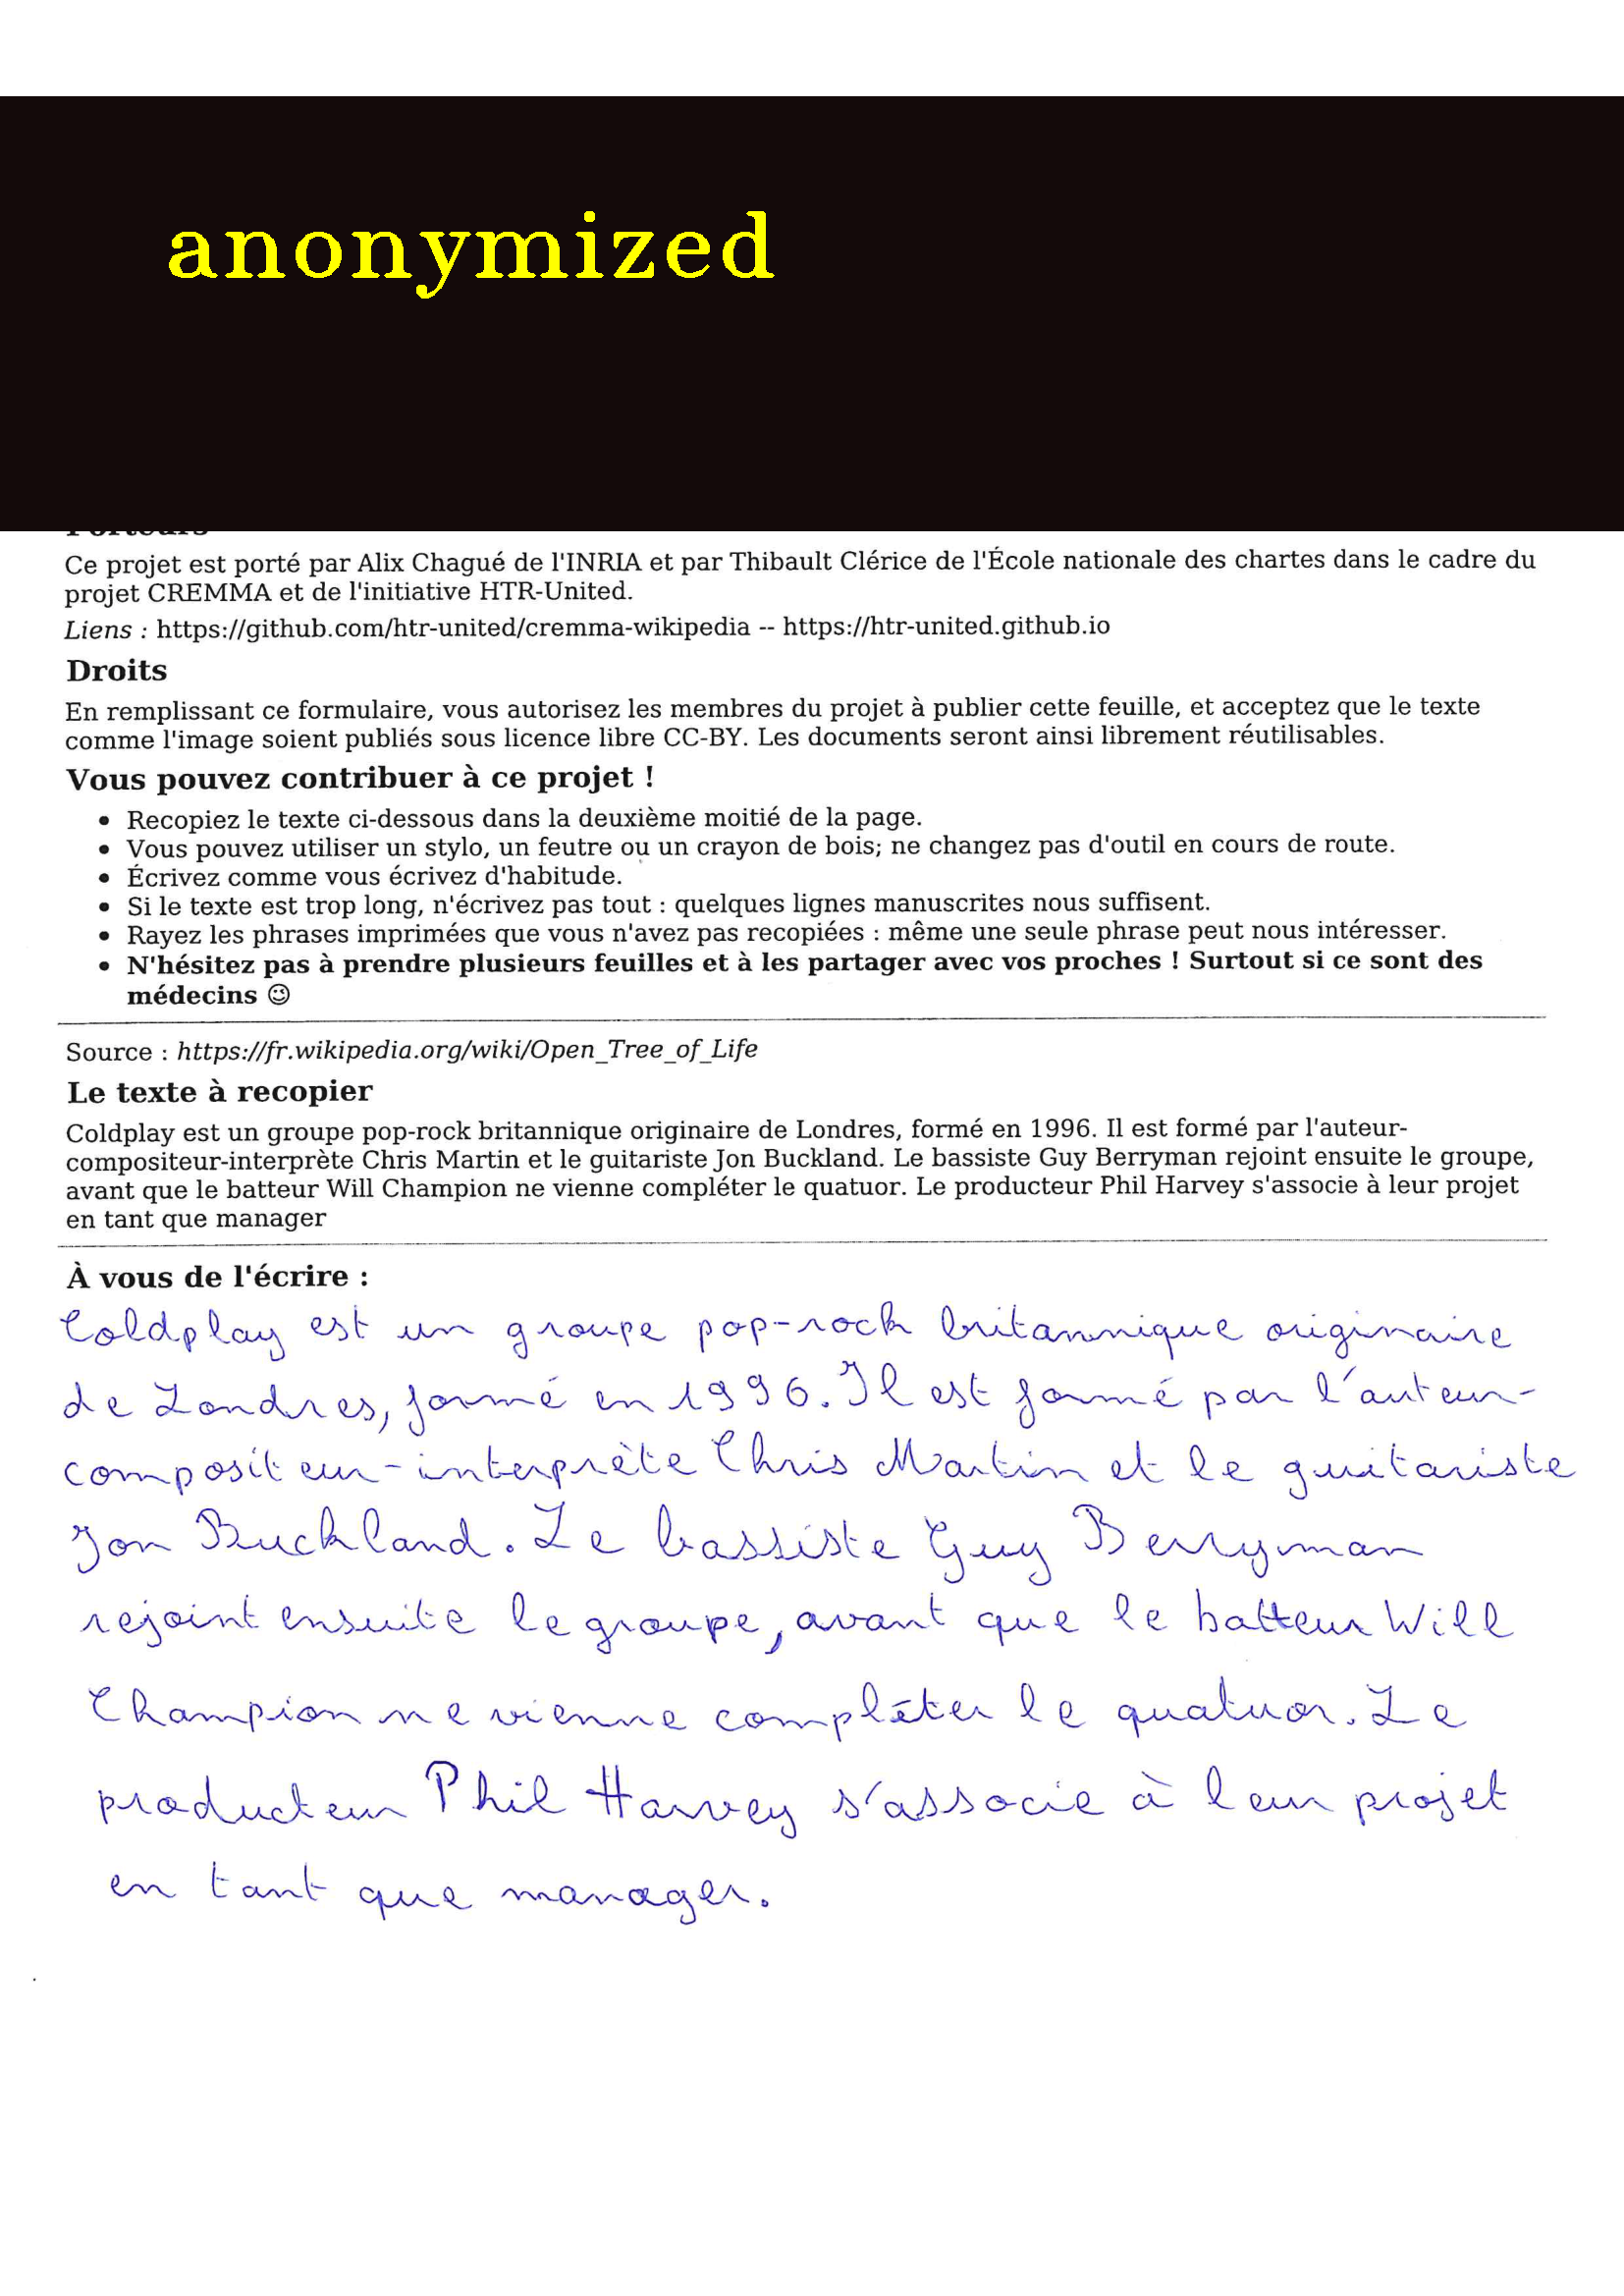 anonymized
Ce projet est porté par Alix Chagué de l'INRIA et par Thibault Clérice de l'École nationale des chartes dans le cadre du
projet CREMMA et de l'initiative HTR-United.
Liens : https://github.com/htr-united/cremma-wikipedia -- https://htr-united.github.io
Droits
En remplissant ce formulaire, vous autorisez les membres du projet à publier cette feuille, et acceptez que le texte
comme l'image soient publiés sous licence libre CC-BY. Les documents seront ainsi librement réutilisables.
Vous pouvez contribuer à ce projet !
• Recopiez le texte ci-dessous dans la deuxième moitié de la page.
• Vous pouvez utiliser un stylo, un feutre ou un crayon de bois; ne changez pas d'outil en cours de route.
• Écrivez comme vous écrivez d'habitude.
• Si le texte est trop long, n'écrivez pas tout : quelques lignes manuscrites nous suffisent.
• Rayez les phrases imprimées que vous n'avez pas recopiées : même une seule phrase peut nous intéresser.
• N'hésitez pas à prendre plusieurs feuilles et à les partager avec vos proches ! Surtout si ce sont des
médecins 😉
Source : https://fr.wikipedia.org/wiki/Open_Tree_of_Life
Le texte à recopier
Coldplay est un groupe pop-rock britannique originaire de Londres, formé en 1996. Il est formé par l'auteur-
compositeur-interprète Chris Martin et le guitariste Jon Buckland. Le bassiste Guy Berryman rejoint ensuite le groupe,
avant que le batteur Will Champion ne vienne compléter le quatuor. Le producteur Phil Harvey s'associe à leur projet
en tant que manager
À vous de l'écrire :
Coldplay est un groupe pop-rock britannique originaire
de Londres, formé en 1996. Il est formé par l'auteur-
compositeur-interprète Chris Martin et le guitariste
Jon Buckland. Le bassiste Guy Berryman
rejoint ensuite le groupe, avant que le batteur Will
Champion ne vienne compléter le quatuor. Le
producteur Phil Harvey s'associe à leur projet
en tant que manager.